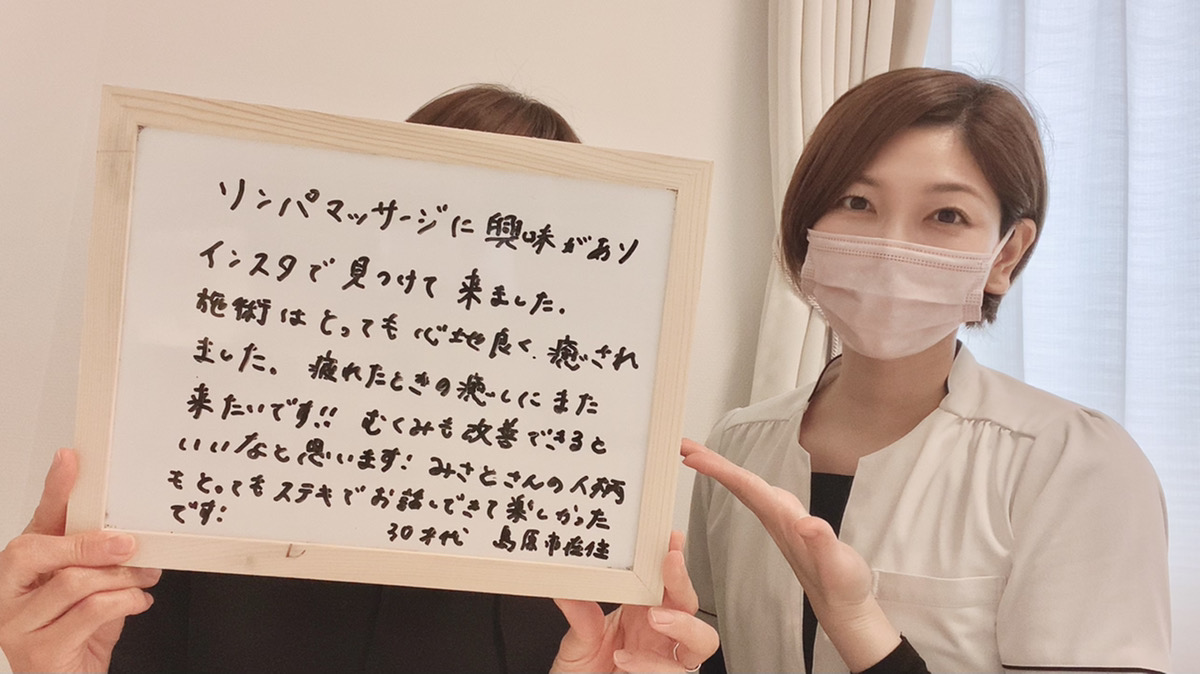 リンパマッサージに興味があり
インスタで見つけて来ました.
施術はとっても心地良く、癒され
ました。疲れたときの癒しにまた
来たいです!! むくみも改善できると
いいなと思います! みさとさんの人柄
もとってもステキでお話しできて楽しかった
です! 30才代 島原市在住